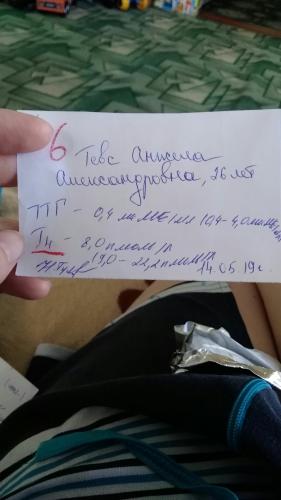 6
Тевс Анжела
Александровна, 26 лет
ТТГ - 0,4 мкМЕ/мл (0,4-4,0 мкМЕ/мл)
Т4 - 8,0 пмоль/л
(9,0-22,2 пмоль/л
14.05.19г.